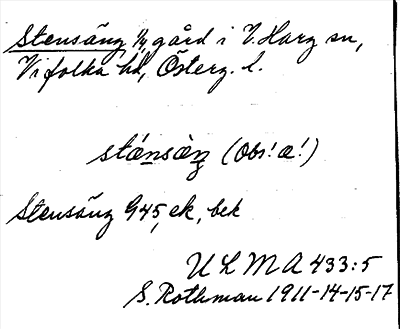 Stensäng 1/4 gård i V. Harg sn,
Vifolka hd, Österg. l.
stánsàŋ (Obs! a!)
Stensäng G45, ek, bek
ULMA 433:5
S. Rothman 1911-14-15-17